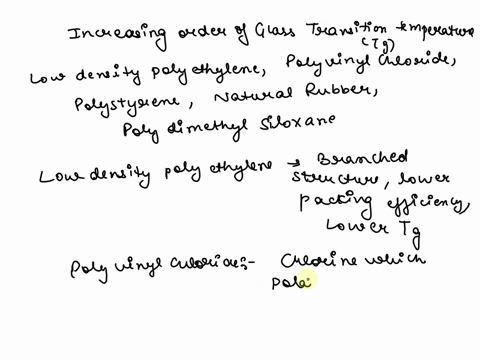 Increasing order of Glass Transition temperature
(Tg)
Low density poly ethylene, Polyvinyl Chloride,
Polystyrene, Natural Rubber,
Poly dimethyl Siloxane
Low density poly ethylene → Branched
structure, lower
packing efficiency
Lower Tg
Poly vinyl chloride:- Chlorine which
pola